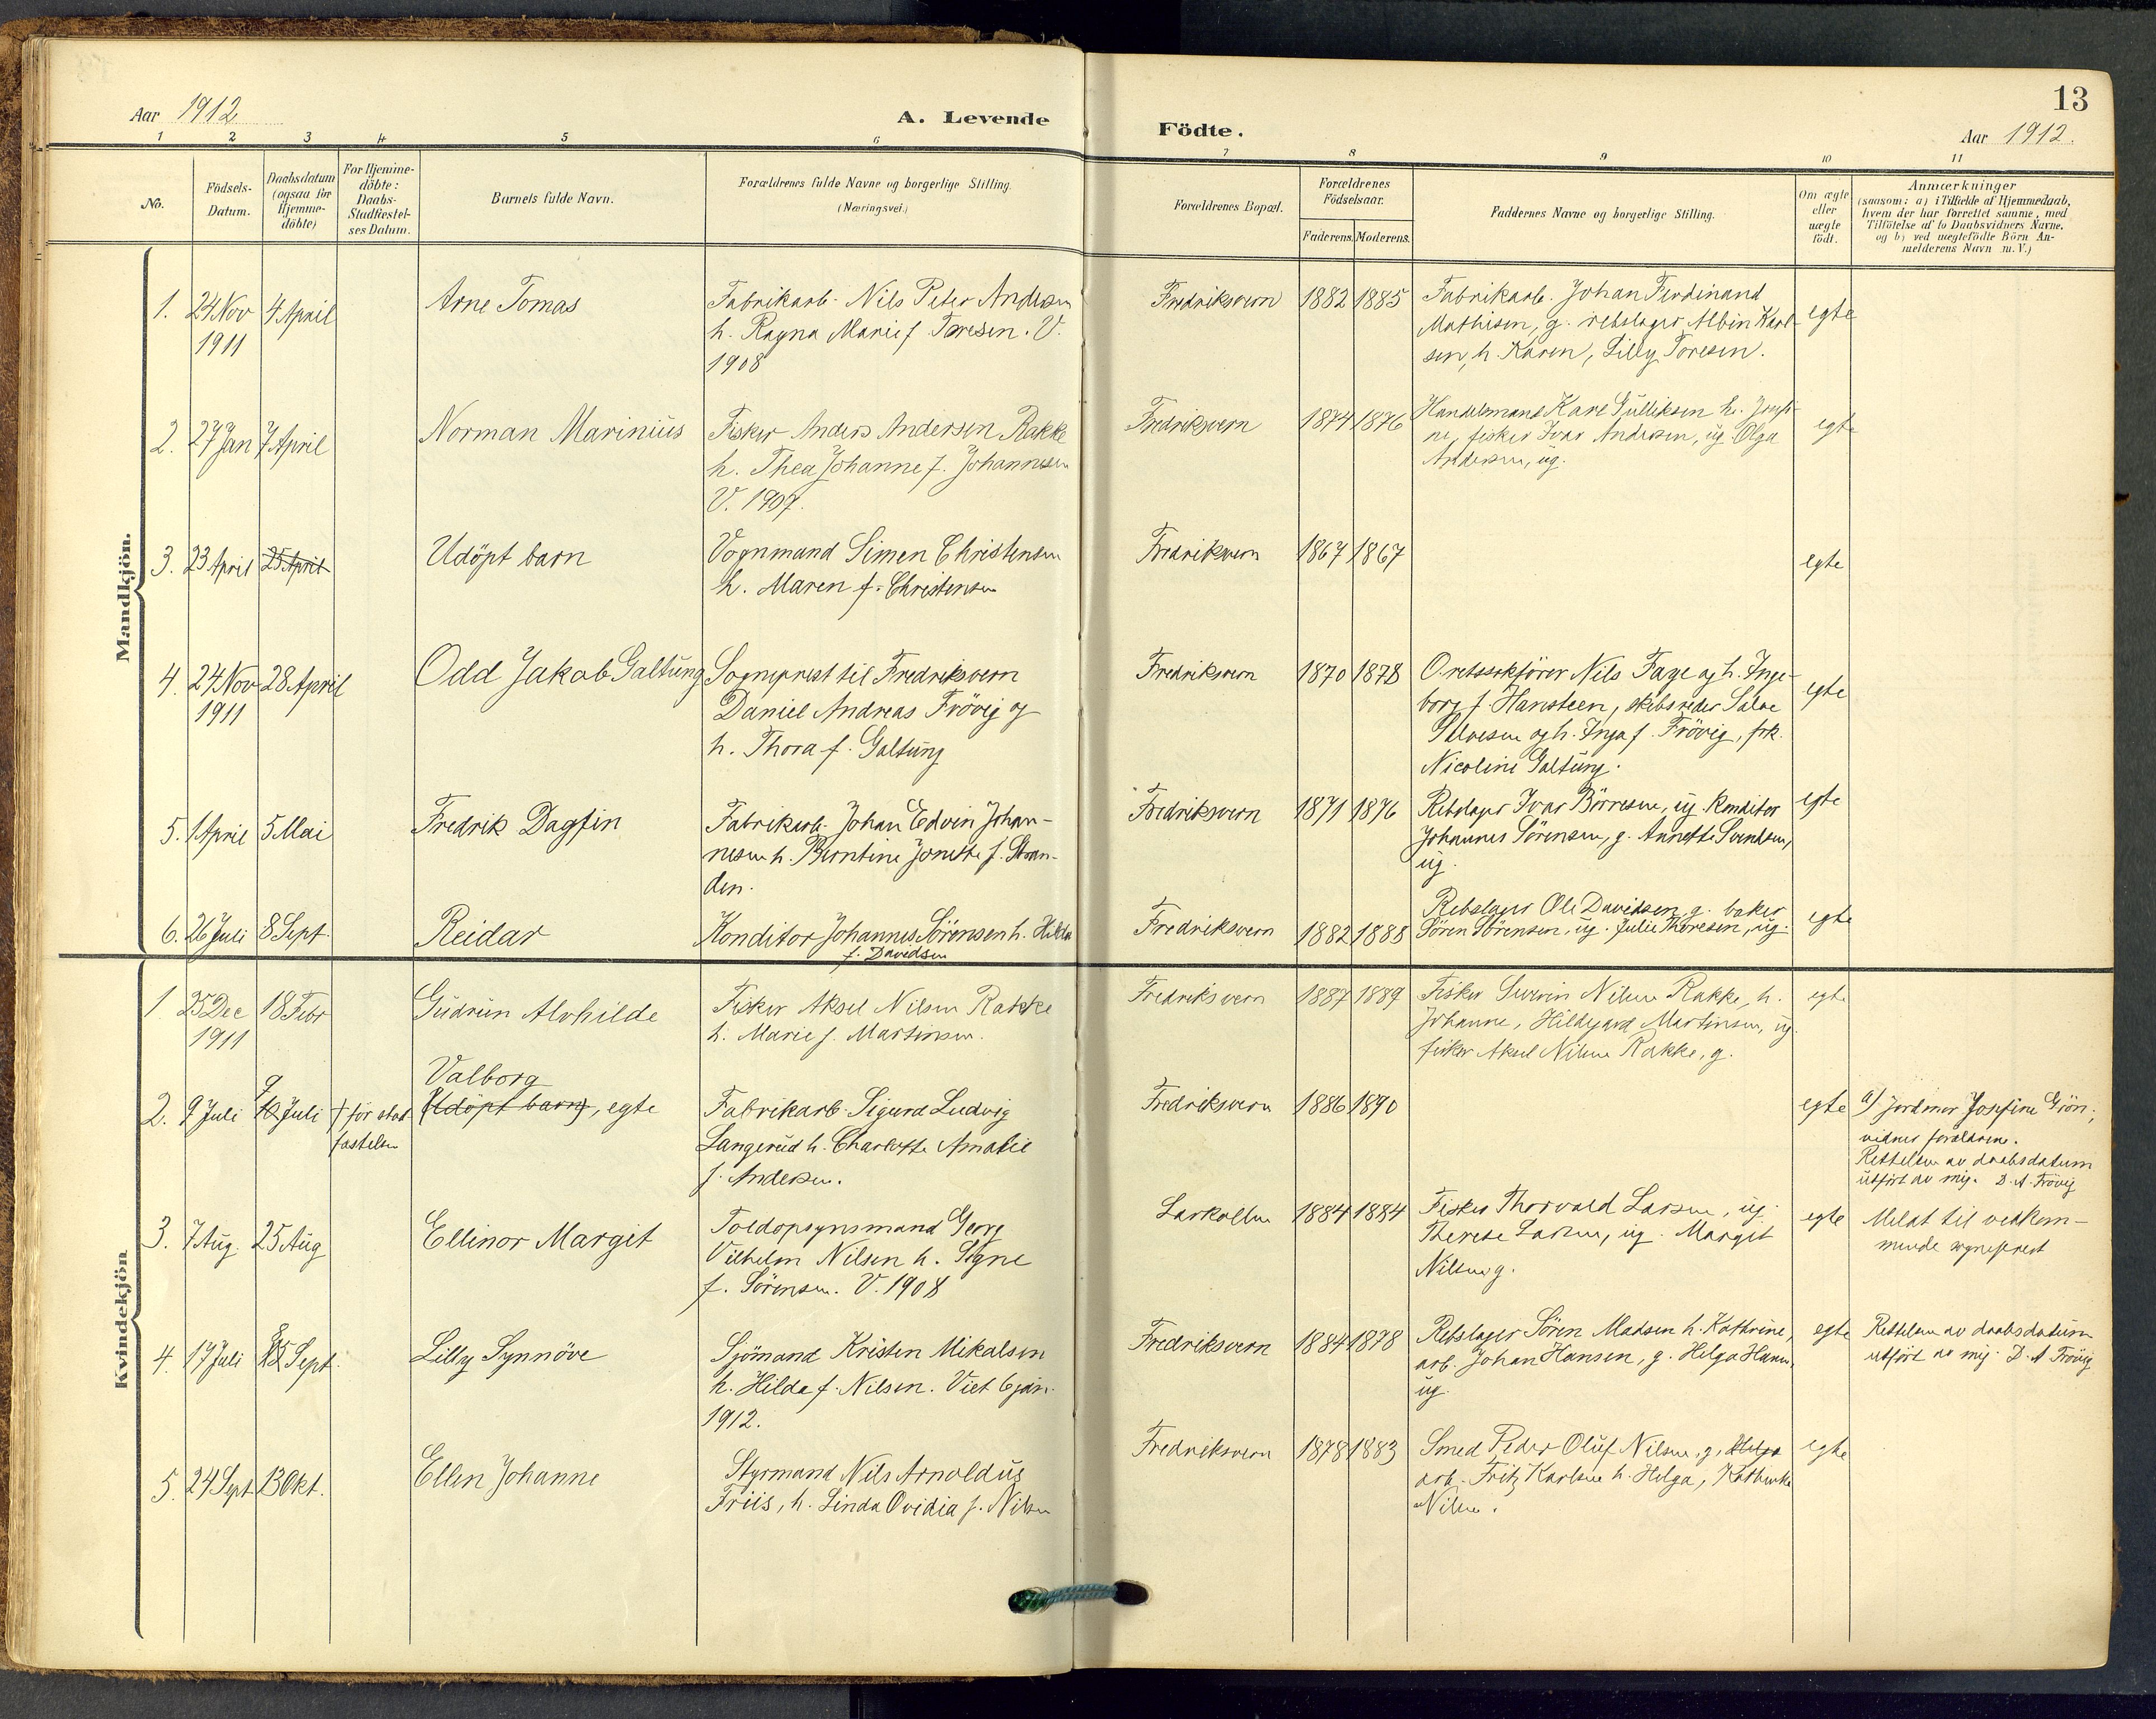 13
Aar 1912
A. Levende
Födte.
Aar 1912.
1 2 3 4 5 6 7 8 9 10 11
No.
Födsels-
Datum.
Daabsdatum
(ogsaa for
Hjemme-
döbte)
For Hjemme-
döbte:
Daabs-
Stadfæstel-
ses Datum.
Barnets fulde Navn.
Forældrenes fulde Navne og borgerlige Stilling.
(Næringsvei.)
Forældrenes Bopæl.
Forældrenes
Födselsaar.
Faderens. Moderens.
Faddernes Navne og borgerlige Stilling.
Om ægte
eller
uægte
födt.
Anmærkninger
(saasom: a) i Tilfælde af Hjemmedaab,
hvem der har forrettet samme, med
Tilföielse af to Daabsvidners Navne,
og b) ved uægtefödte Börn An-
melderens Navn m. V.)
Mandkjön.
1. 24 Nov 1911
4 April
Arne Tomas
Fabrikarb. Nils Peter Andersen
h. Ragna Marie f. Toresen. V.
1908
Fredriksvern
1882 1885
Fabrikarb. Johan Ferdinand
Mathisen, g. rebslager Albin Karl-
sen, h. Karen, Lilly Toresen.
egte
2. 27 Jan
7 April
Norman Marinius
Fisker Anders Andersen Rakke
h. Thea Johanne f. Johannesen
V. 1907.
Fredriksvern
1874 1876
Handelsmand Karl Gulliksen h. Josefi-
ne, fisker Ivar Andersen, ug. Olga
Andersen, ug.
egte
3. 23 April
25 April
Udöpt barn
Vognmand Simen Christensen
h. Maren f. Christensen
Fredriksvern
1867 1867
egte
4. 24 Nov 1911
28 April
Odd Jakob Galtung
Sogneprest til Fredriksvern
Daniel Andreas Frövig og
h. Thora f. Galtung
Fredriksvern
1870 1878
O.retssakförer Nils Faye og h. Inge-
borg f. Hansteen, skibsreder Salve
Salvesen og h. Inga f. Frövig, frk.
Nicoline Galtung.
egte
5. 1 April
5 Mai
Fredrik Dagfin
Fabrikarb. Johan Edvin Johan-
nesen h. Berntine Jonette f. Stran-
den.
Fredriksvern
1871 1876
Rebslager Ivar Börresen, ug. Konditor
Johannes Sörensen, g. Annette Svendsen,
ug.
egte
6. 26 Juli
8 Sept.
Reidar
Konditor Johannes Sörensen h. Hilda
f. Davidsen
Fredriksvern
1882 1888
Rebslager Ole Davidsen, g. baker
Sören Sörensen, ug. Julie Thoresen, ug.
egte
Kvindekjön
1. 25 Dec 1911
18 Febr
Gudrun Alvhilde
Fisker Aksel Nilsen Rakke
h. Marie f. Martinsen.
Fredriksvern
1887 1889
Fisker Severin Nilsen Rakke, h.
Johanne, Hildegard Martinsen, ug.
fisker Aksel Nilsen Rakke, g.
egte
2. 9 Juli
9
10 Juli
† för stad-
fæstelsen
Valborg
(Udöpt barn), egte
Fabrikarb. Sigurd Ludvig
Langerud h. Charlotte Amalie
f. Andersen.
Fredriksvern
1886 1890
egte
a) Jordmor Josefine Grön,
vidner forældrene.
Rettelsen av daabsdatum
utfört av mig. D. A. Frövig
3. 7 Aug.
25 Aug
Ellinor Margit
Toldopsynsmand Georg
Vilhelm Nilsen h. Signe
f. Sörensen. V. 1908
Larkollen
1884 1884
Fisker Thorvald Larsen, ug.
Therese Larsen, ug. Margit
Nilsen g.
egte
Meldt til vedkom-
mende sogneprest
4. 17 Juli
8
15 Sept.
Lilly Synnöve
Sjömand Kristen Mikalsen
h. Hilda f. Nilsen. Viet 6 jan.
1912.
Fredriksvern
1884 1878
Rebslager Sören Madsen h. Kathrine,
arb. Johan Hansen, g. Helga Hansen,
ug.
egte
Rettelsen av daabsdatum
utfört av mig. D. A. Frövig
5. 24 Sept.
13 Okt.
Ellen Johanne
Styrmand Nils Arnoldus
Friis, h. Linda Ovidia f. Nilsen
Fredriksvern
1878 1883
Smed Peder Oluf Nilsen, g, Helga
arb. Fritz Karlsen h. Helga, Kathinka
Nilsen.
egte